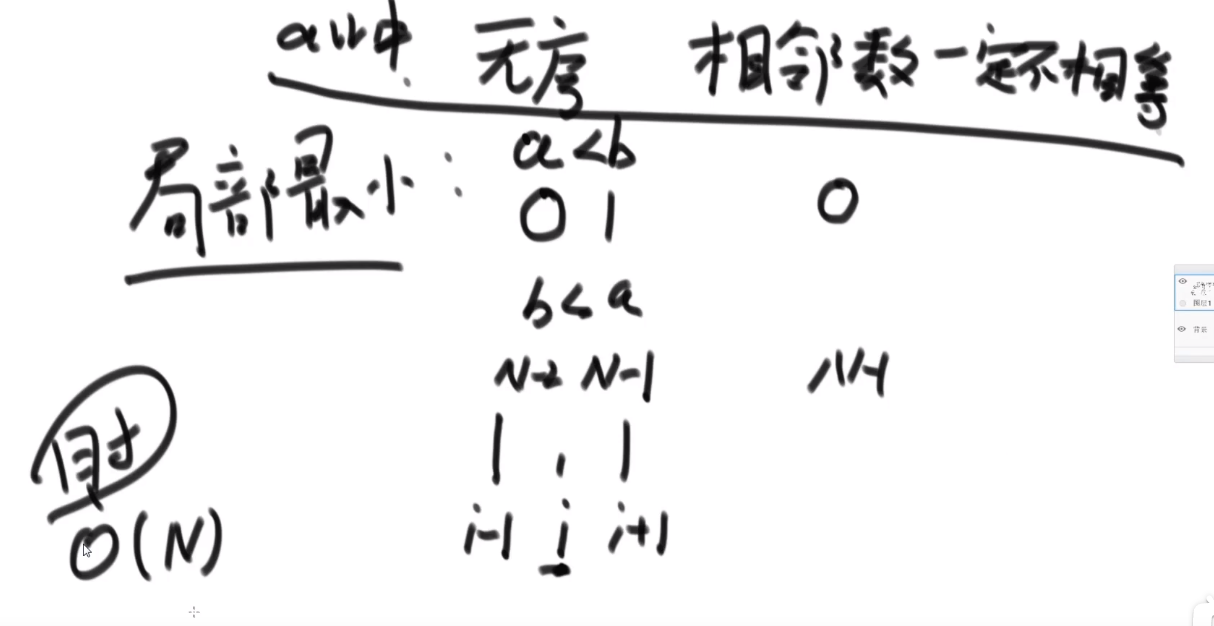 arr中 无序 相邻数一定不相等
局部最小: a<b
0 1 0
b<a
N-2 N-1 N-1
i-1 i i+1
O(N)
图层1
背景